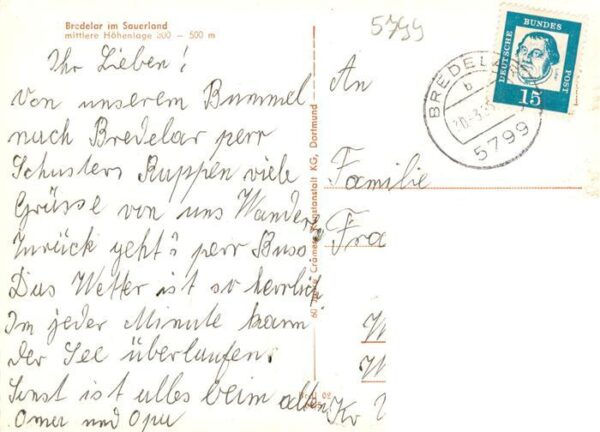 Bredelar im Sauerland
mittlere Höhenlage 300 - 500 m
Ihr Lieben!
Von unserem Bummel
nach Bredelar perr
Schusters Ruppen viele
Grüsse von uns Wanderer
Zurück geht's perr Buss
Das Wetter ist so herrlich
Im jeder Minute kann
der See überlaufen.
Sonst ist alles beim alten
Omer und Opa
60 Jahre Cramers Kunstanstalt KG, Dortmund
5799
An
Familie
Fra
Kr
BREDELAR
b
5799
DEUTSCHE BUNDES POST
15